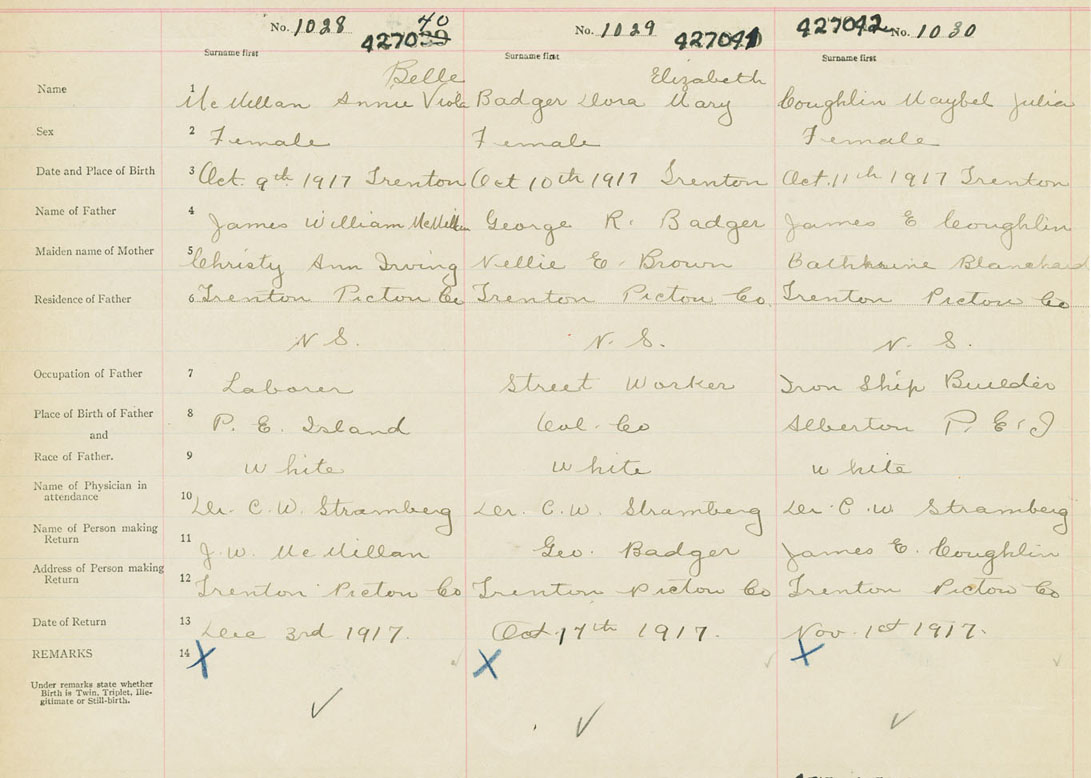 No. 1028 40 42703̶9̶ No. 1029 427041 427042 No. 1030
Surname first Surname first Surname first
Belle Elizabeth
Name 1 McMillan Annie Viola Badger Dora Mary Coughlin Maybel Julia
Sex 2 Female Female Female
Date and Place of Birth 3 Oct. 9th 1917 Trenton Oct 10th 1917 Trenton Oct. 11th 1917 Trenton
Name of Father 4 James William McMillan George R. Badger James E Coughlin
Maiden name of Mother 5 Christy Ann Irving Nellie E. Brown Cathherine Blanchard
Residence of Father 6 Trenton Pictou Co Trenton Pictou Co. Trenton Pictou Co
N S. N. S. N. S.
Occupation of Father 7 Laborer Street Worker Iron Ship Builder
Place of Birth of Father 8 P. E. Island Col. Co Alberton P. E. I
and
Race of Father. 9 White White White
Name of Physician in
attendance 10 Dr. C. W. Stramberg Dr. C. W. Stramberg Dr. C. W Stramberg
Name of Person making
Return 11 J. W. McMillan Geo. Badger James E. Coughlin
Address of Person making
Return 12 Trenton Pictou Co Trenton Pictou Co Trenton Pictou Co
Date of Return 13 Dec 3rd 1917. Oct 17th 1917. Nov. 1st 1917.
REMARKS 14 X X X
Under remarks state whether
Birth is Twin, Triplet, Ille-
gitimate or Still-birth.